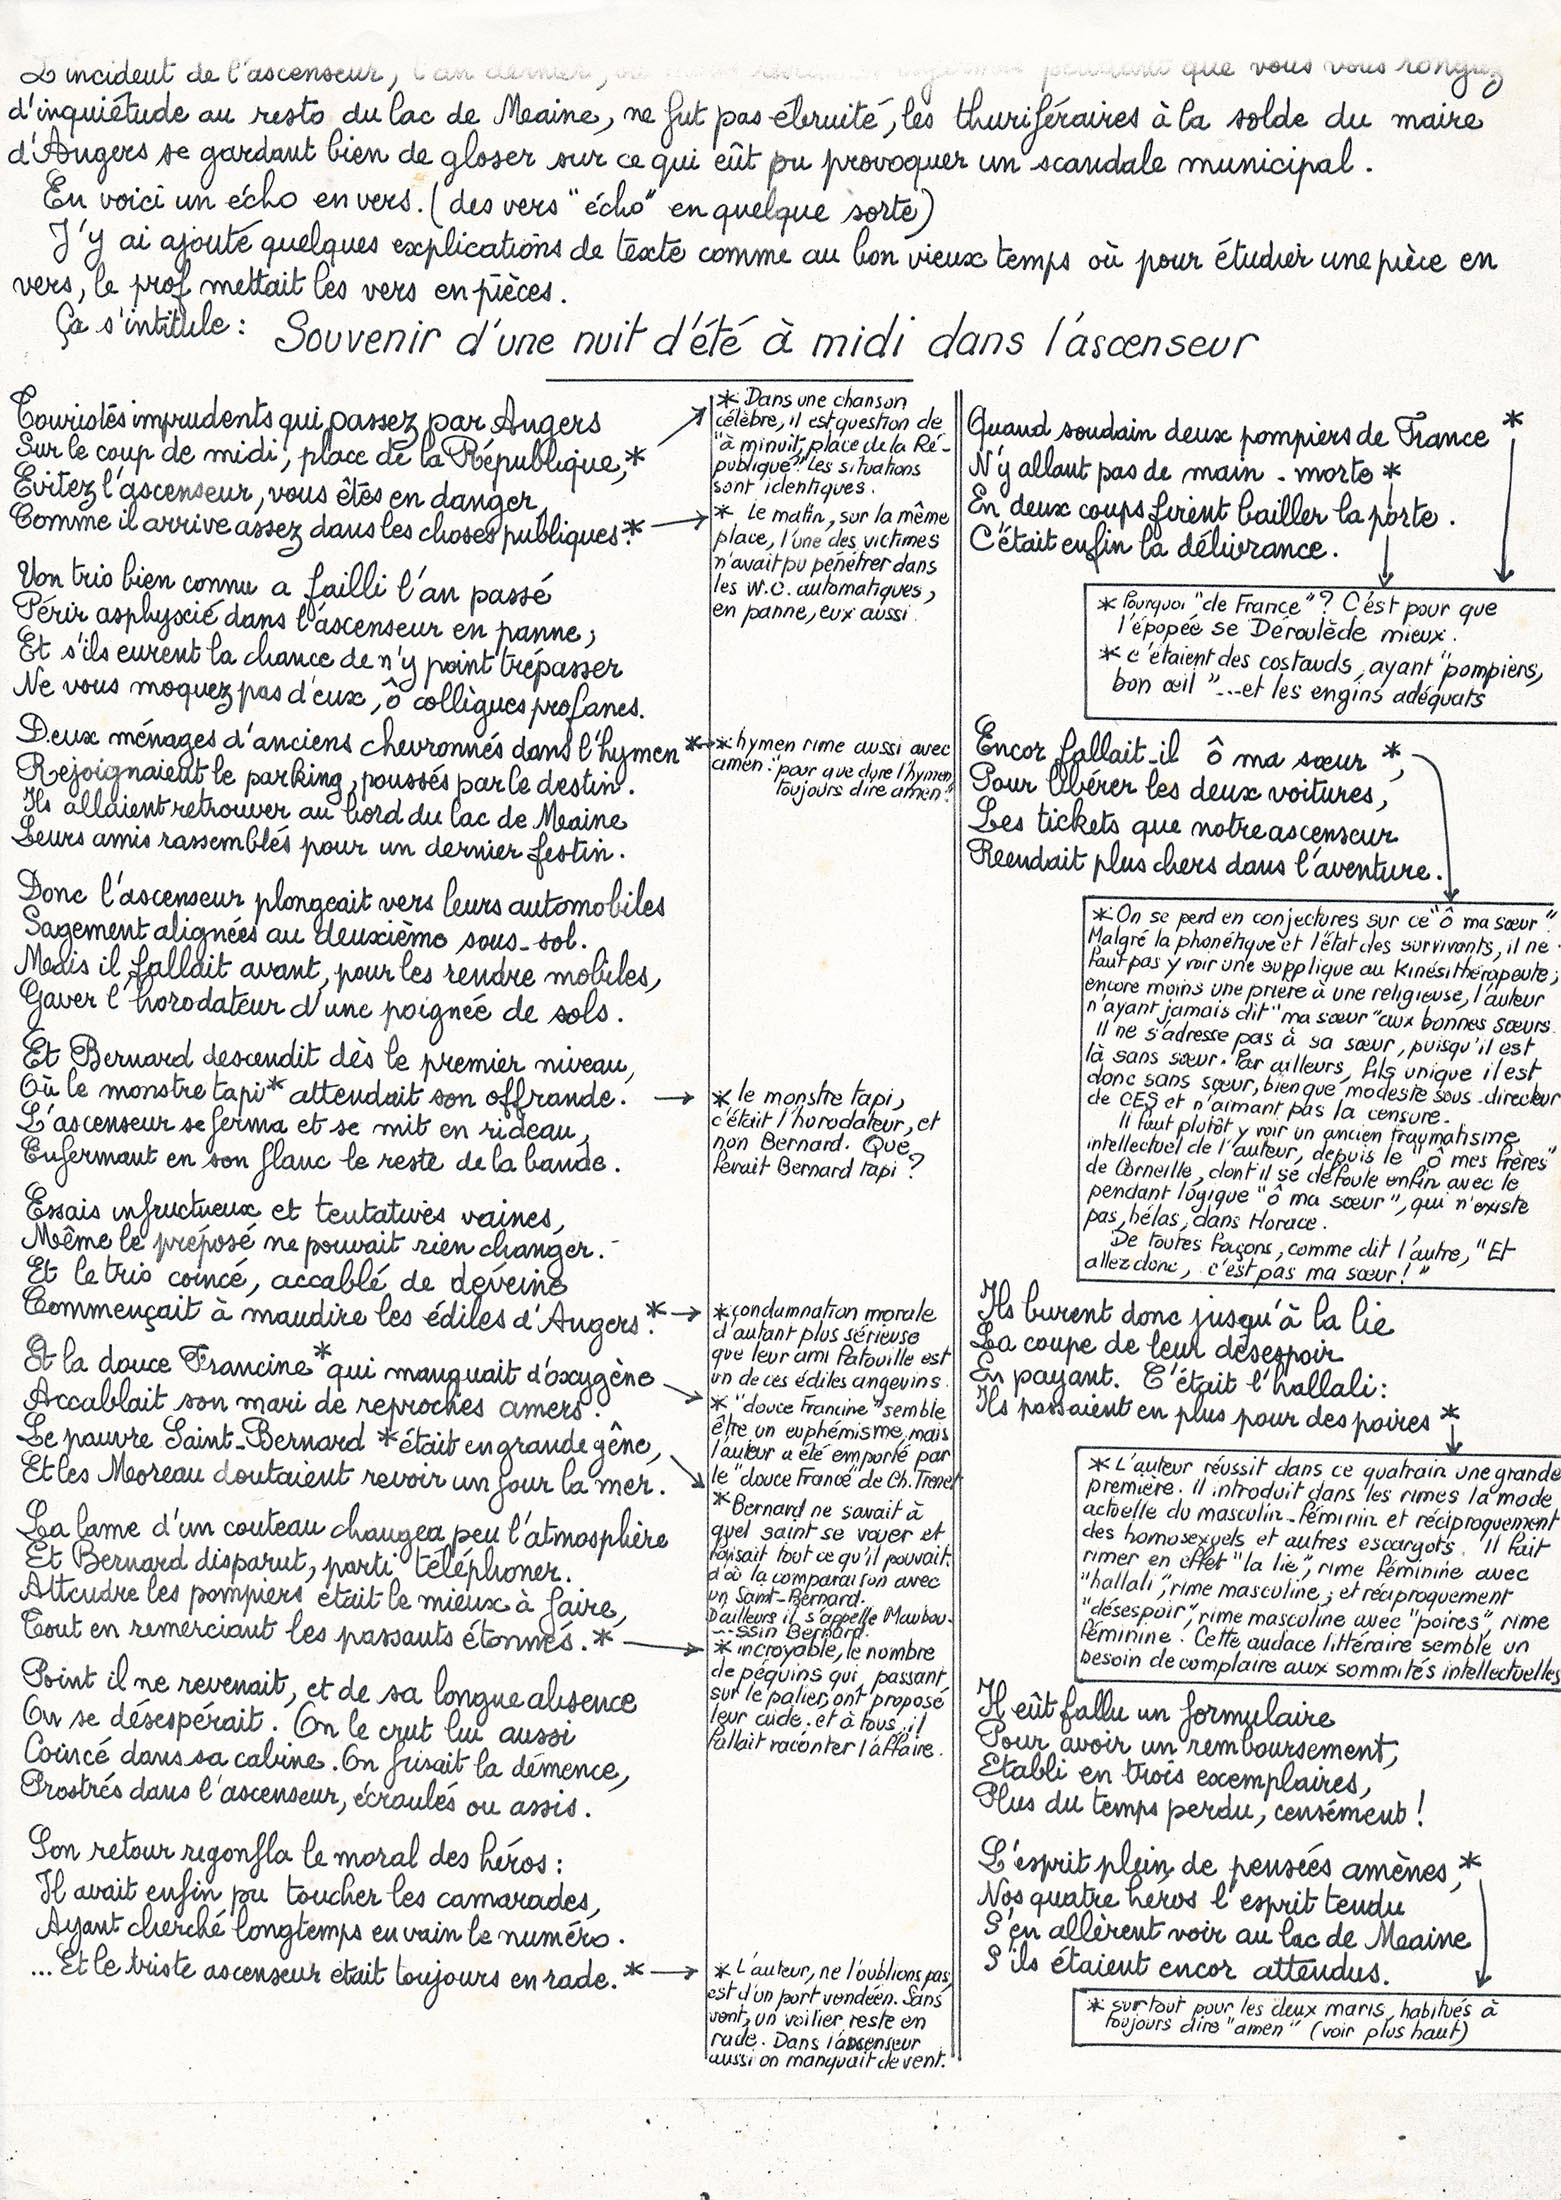 L'incident de l'ascenseur, l'an dernier, pendant que vous vous rongiez
d'inquiétude au resto du lac de Maine, ne fut pas ébruité, les thuriféraires à la solde du maire
d'Angers se gardant bien de gloser sur ce qui eût pu provoquer un scandale municipal.
En voici un écho en vers. (des vers "écho" en quelque sorte)
J'y ai ajouté quelques explications de texte comme au bon vieux temps où pour étudier une pièce en
vers, le prof mettait les vers en pièces.
Ça s'intitule : Souvenir d'une nuit d'été à midi dans l'ascenseur
Touristes imprudents qui passez par Angers
Sur le coup de midi, place de la République,*
Evitez l'ascenseur, vous êtes en danger,
Comme il arrive assez dans les choses publiques.*
Un trio bien connu a failli l'an passé
Périr asphyxié dans l'ascenseur en panne,
Et s'ils eurent la chance de n'y point trépasser
Ne vous moquez pas d'eux, ô collègues profanes.
Deux ménages d'anciens chevronnés dans l'hymen *
Rejoignaient le parking, poussés par le destin.
Ils allaient retrouver au bord du lac de Maine
Leurs amis rassemblés pour un dernier festin.
Donc l'ascenseur plongeait vers leurs automobiles
Sagement alignées au deuxième sous-sol.
Mais il fallait avant, pour les rendre mobiles,
Gaver l'horodateur d'une poignée de sols.
Et Bernard descendit dès le premier niveau,
Où le monstre tapi* attendait son offrande.
L'ascenseur se ferma et se mit en rideau,
Enfermant en son flanc le reste de la bande.
Essais infructueux et tentatives vaines,
Même le préposé ne pouvait rien changer.
Et le trio coincé, accablé de déveine
Commençait à maudire les édiles d'Angers.*
Et la douce Francine* qui manquait d'oxygène
Accablait son mari de reproches amers.
Le pauvre Saint-Bernard * était en grande gêne,
Et les Moreau doutaient revoir un jour la mer.
La lame d'un couteau changea peu l'atmosphère
Et Bernard disparut, parti téléphoner.
Attendre les pompiers était le mieux à faire,
Tout en remerciant les passants étonnés.*
Point il ne revenait, et de sa longue absence
On se désespérait. On le crut lui aussi
Coincé dans sa cabine. On frisait la démence,
Prostrés dans l'ascenseur, écroulés ou assis.
Son retour regonfla le moral des héros :
Il avait enfin pu toucher les camarades,
Ayant cherché longtemps en vain le numéro.
... Et le triste ascenseur était toujours en rade.*
* Dans une chanson
célèbre, il est question de
"à minuit, place de la Ré-
publique". Les situations
sont identiques.
* Le matin, sur la même
place, l'une des victimes
n'avait pu pénétrer dans
les W.C. automatiques,
en panne, eux aussi.
* hymen rime aussi avec
amen : "pour que dure l'hymen,
toujours dire amen".
* le monstre tapi,
c'était l'horodateur, et
non Bernard. Que
ferait Bernard tapi ?
* condamnation morale
d'autant plus sérieuse
que leur ami Patouille est
un de ces édiles angevins.
* "douce Francine" semble
être un euphémisme, mais
l'auteur a été emporté par
le "douce France" de Ch. Trenet
* Bernard ne savait à
quel saint se vouer et
faisait tout ce qu'il pouvait.
d'où la comparaison avec
un Saint-Bernard.
D'ailleurs il s'appelle Maubou-
---ssin Bernard.
* incroyable, le nombre
de péquins qui, passant
sur le palier, ont proposé
leur aide. et à tous, il
fallait raconter l'affaire.
* L'auteur, ne l'oublions pas,
est d'un port vendéen. Sans
vent, un voilier reste en
rade. Dans l'ascenseur
aussi on manquait de vent.
Quand soudain deux pompiers de France *
N'y allant pas de main - morte *
En deux coups firent bailler la porte.
C'était enfin la délivrance.
* Pourquoi "de France" ? C'est pour que
l'épopée se Déroulède mieux.
* c'étaient des costauds, ayant "pompiers,
bon œil"...et les engins adéquats
Encor fallait-il ô ma sœur *,
Pour libérer les deux voitures,
Les tickets que notre ascenseur
Rendait plus chers dans l'aventure.
* On se perd en conjectures sur ce "ô ma sœur".
Malgré la phonétique et l'état des survivants, il ne
faut pas y voir une supplique au kinésithérapeute;
encore moins une prière à une religieuse, l'auteur
n'ayant jamais dit "ma sœur" aux bonnes sœurs.
Il ne s'adresse pas à sa sœur, puisqu'il est
là sans sœur. Par ailleurs, fils unique il est
donc sans sœur, bien que modeste sous-directeur
de CES et n'aimant pas la censure.
Il faut plutôt y voir un ancien traumatisme
intellectuel de l'auteur, depuis le "ô mes frères"
de Corneille, dont il se défoule enfin avec le
pendant logique "ô ma sœur", qui n'existe
pas, hélas, dans Horace.
De toutes façons, comme dit l'autre, "Et
allez donc, c'est pas ma sœur !"
Ils burent donc jusqu'à la lie
La coupe de leur désespoir
En payant. C'était l'hallali :
Ils passaient en plus pour des poires *
* L'auteur réussit dans ce quatrain une grande
première. Il introduit dans les rimes la mode
actuelle du masculin-féminin et réciproquement
des homosexuels et autres escargots. Il fait
rimer en effet "la lie", rime féminine avec
"hallali", rime masculine ; et réciproquement
"désespoir", rime masculine avec "poires", rime
féminine. Cette audace littéraire semble un
besoin de complaire aux sommités intellectuelles
Il eût fallu un formulaire
Pour avoir un remboursement,
Etabli en trois exemplaires,
Plus du temps perdu, censément !
L'esprit plein de pensées amènes,*
Nos quatre héros l'esprit tendu
S'en allèrent voir au lac de Maine
S'ils étaient encor attendus.
* surtout pour les deux maris, habitués à
toujours dire "amen" (voir plus haut)